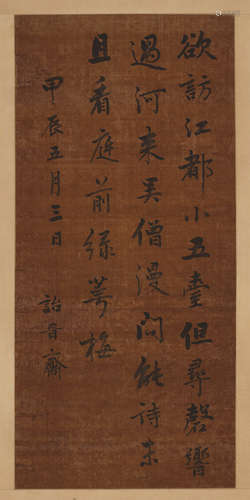 欲訪江都小五臺但尋磬響
過河來吴僧漫問能詩未
且看庭前綠萼梅
甲辰五月三日
詒晉齋